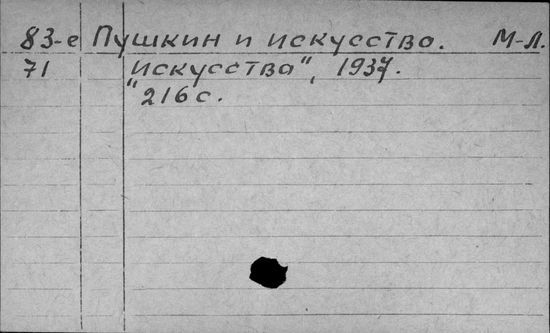 83-е Пушкин и искусство. М-Л.
71 Искусства", 1937.
"216 с.